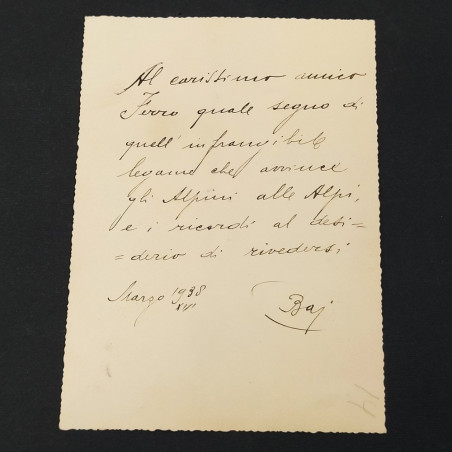 Al carissimo amico
Ferro quale segno di
quell' infrangibile
legame che avvince
gli Alpini alle Alpi,
e i ricordi al desi=
=derio di rivedersi
Marzo 1938
XVI
Baj
14